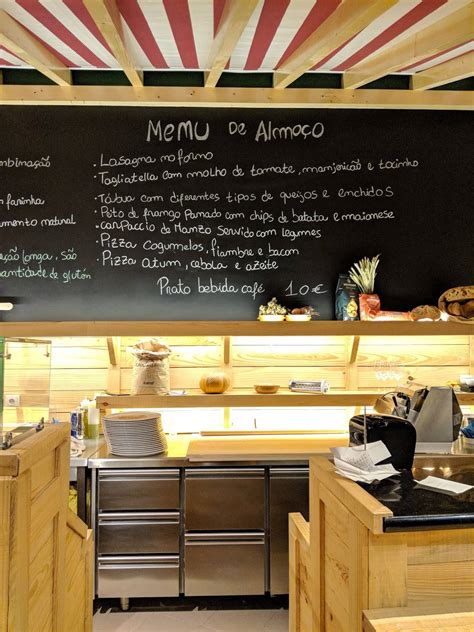 Menu de Almoço
· Lasagna no forno
· Tagliatella com molho de tomate, manjericão e tocinho
· Tábua com diferentes tipos de queijos e enchidos
· Peito de frango Panado com chips de batata e maionese
· canpaccio de Manzo servido com legumes
· Pizza cogumelos, fiambre e bacon
· Pizza atum, cebola e azeite
Prato bebida café 10€
ombinação
farinha
amento natural
ação longa, são
quantidade de glutén